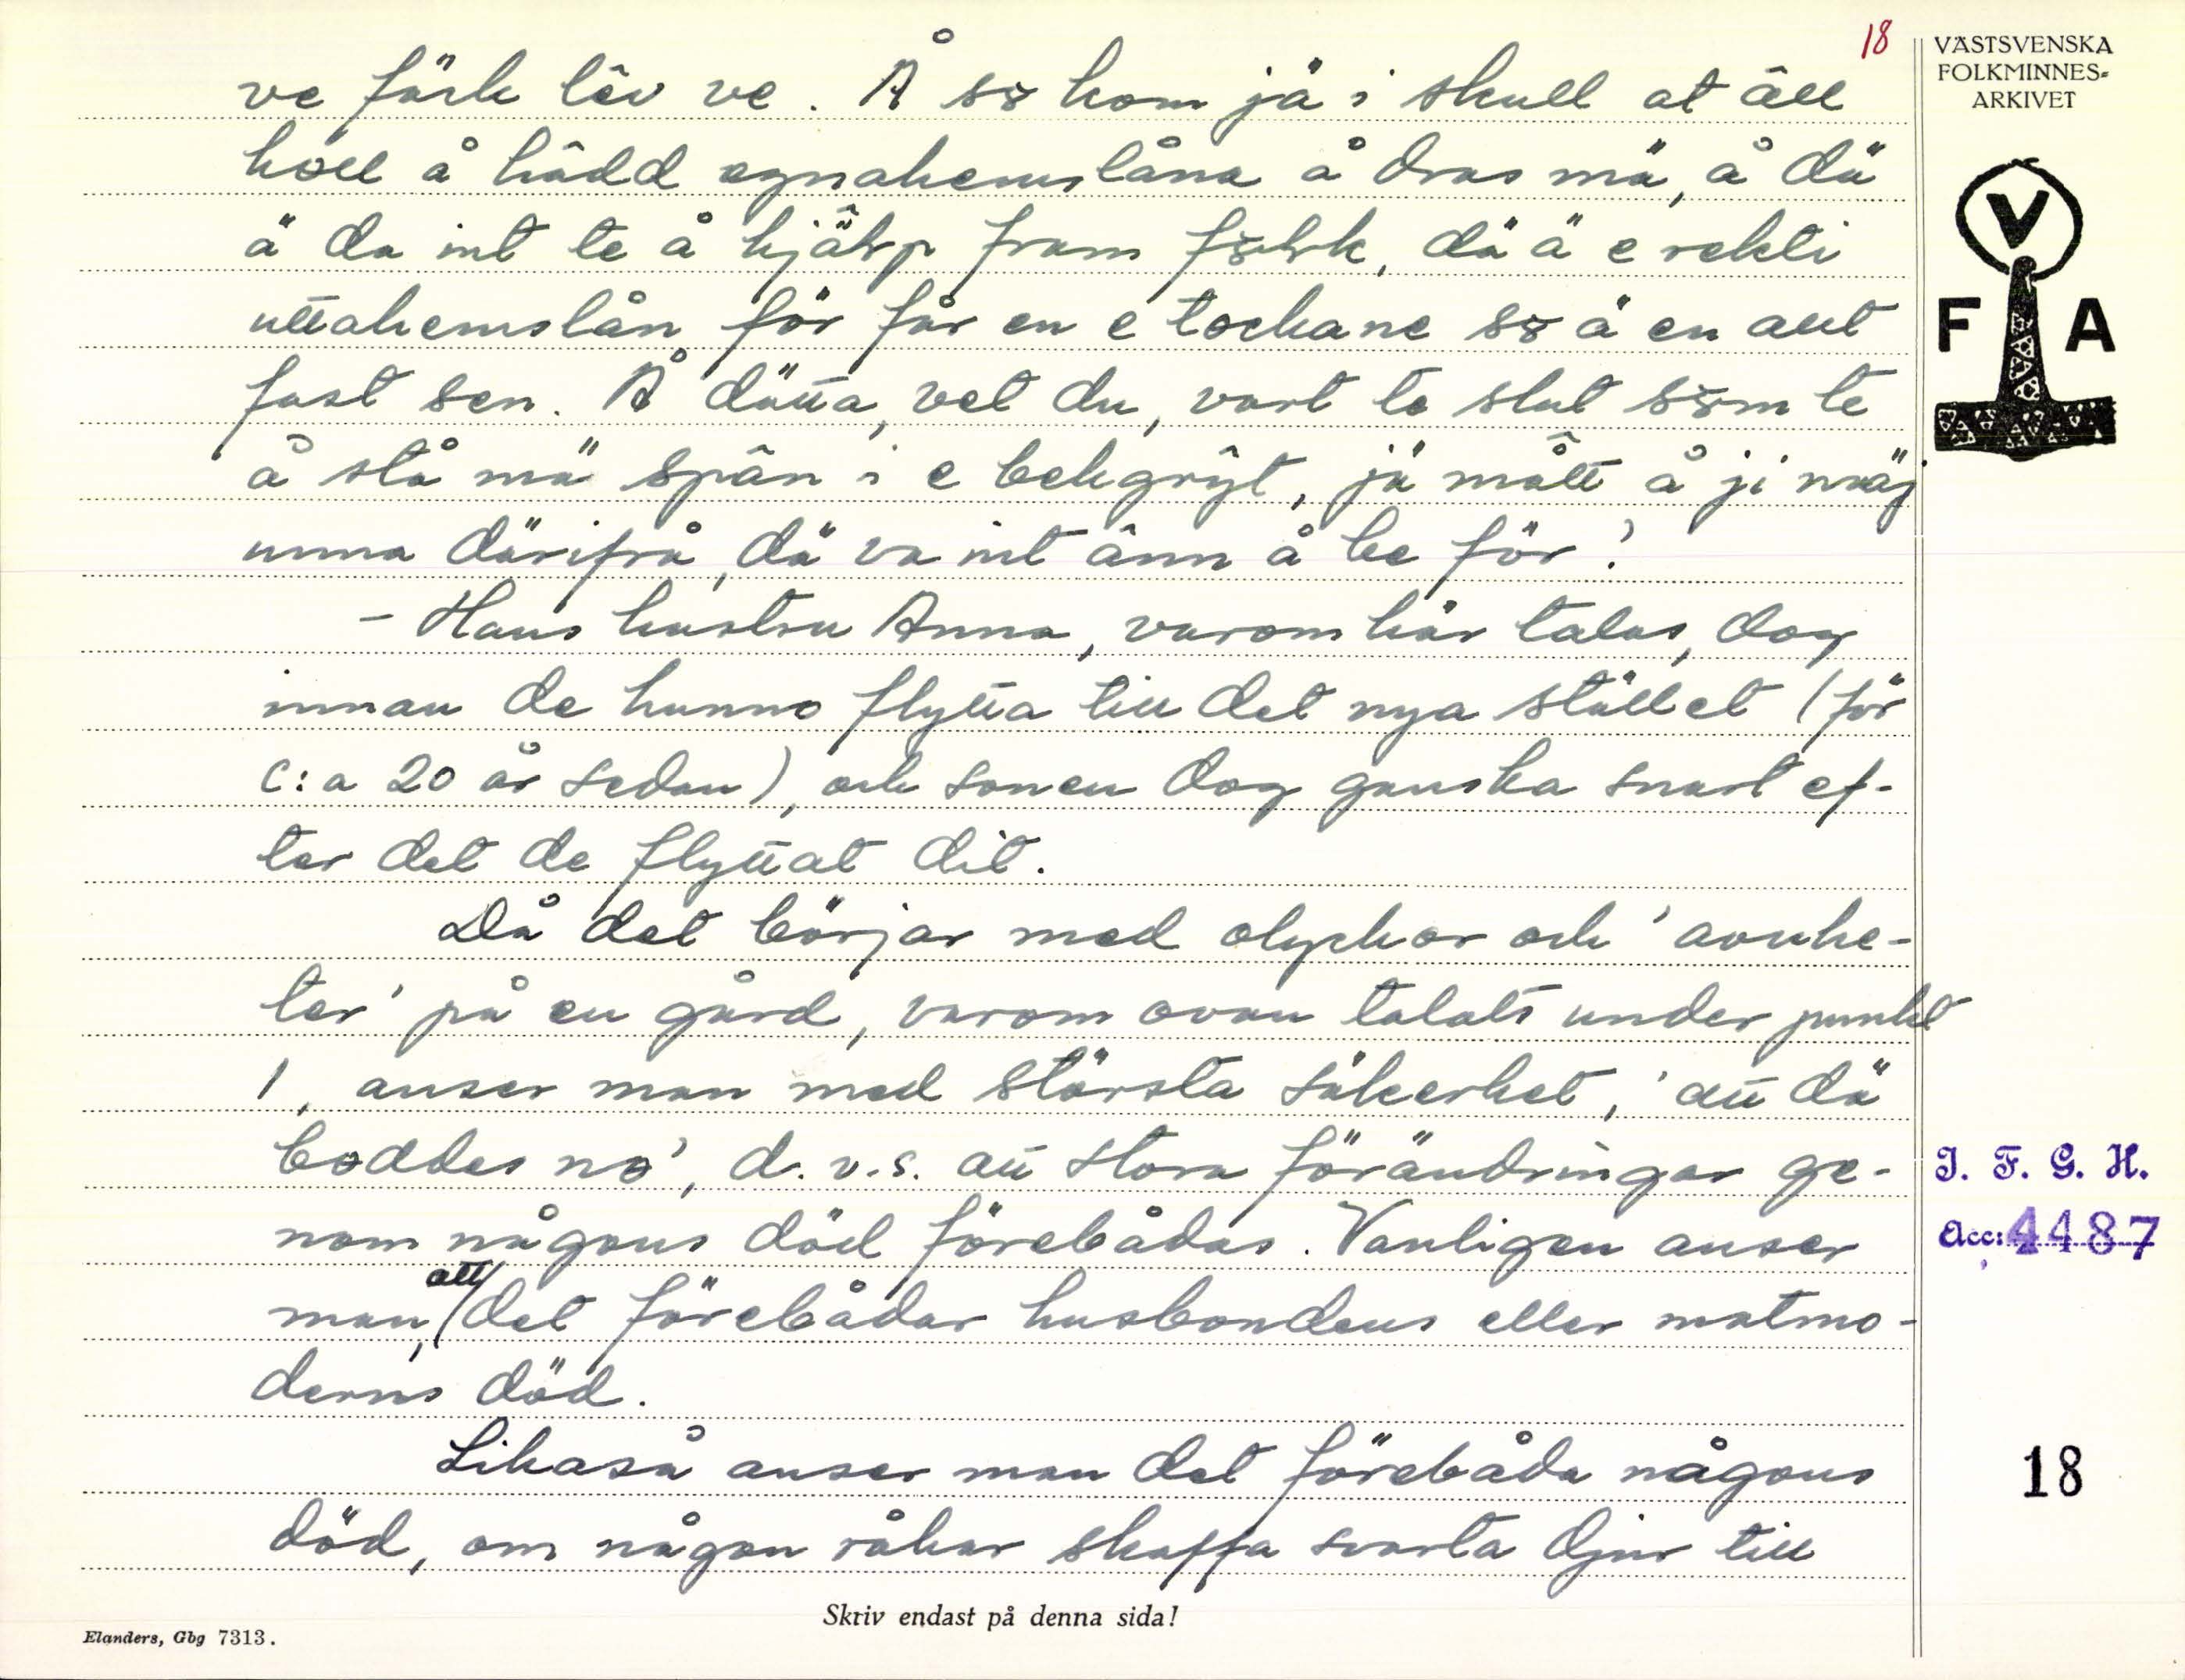 18
VÄSTSVENSKA
FOLKMINNES-
ARKIVET
V
F A
ve färk lêv ve. Å sɤ kom jä i skull at âll
höll å hâdd egnahemslåna å dras mä, å dä
ä da int te å hjâlp fram fɤhlk, dä ä e rekti
uttahemslån för får en e tockane sɤ ä en ant
fast sen. Å dätta, vet du, vart te slut sɤm te
å stå mä spân i e bekgrŷt, jä mâtt å ji mäj
unna därifrå, dä va int ânn å be för!
- Hans hustru Anna, varom här talas, dog
innan de hunno flytta till det nya stället (för
c:a 20 år sedan), och sonen dog ganska snart ef-
ter det de flyttat dit.
Då det börjar med olyckor och 'avuhe-
ter' på en gård, varom ovan talats under punkt
1, anser man med största säkerhet, 'att dä
boddes nɵ', d.v.s. att stora förändringar ge-
nom någons död förebådas. Vanligen anser
man, att det förebådar husbondens eller matmo-
derns död.
Likaså anser man det förebåda någons
död, om någon råkar skaffa svarta djur till
I. F. G. H.
Acc: 4487
18
Skriv endast på denna sida!
Elanders, Gbg 7313.